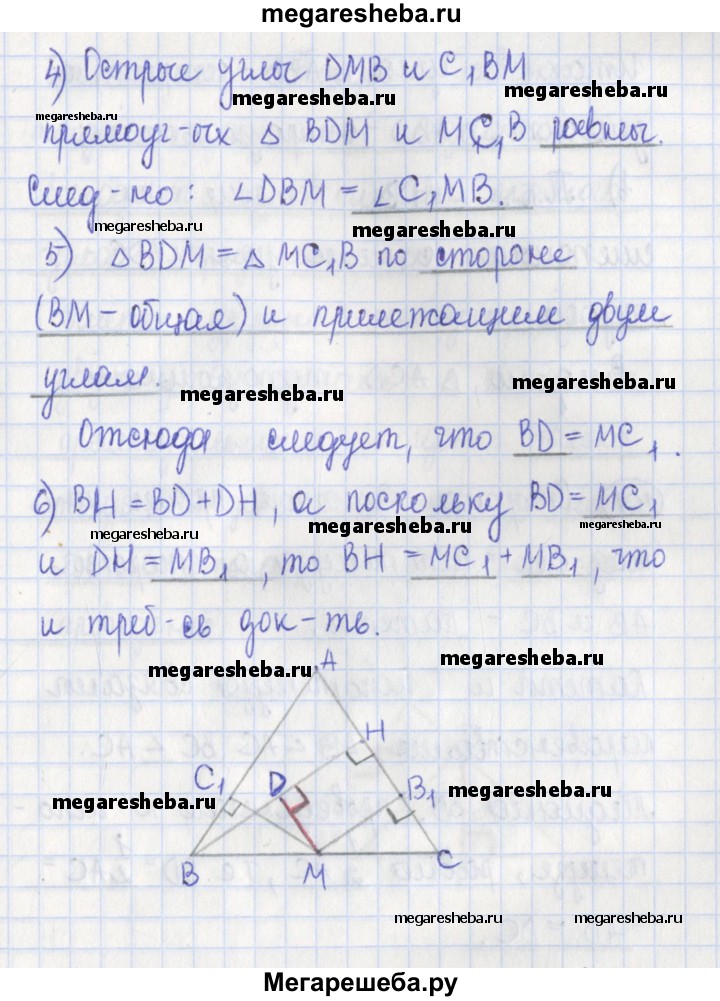 megaresheba.ru
4) Острые углы DMB и C₁BM
megaresheba.ru megaresheba.ru
megaresheba.ru
прямоуг-ых △ BDM и MC₁B равны.
След-но: ∠DBM = ∠C₁MB.
megaresheba.ru megaresheba.ru
5) △BDM = △ MC₁B по стороне
(BM – общая) и прилежащим двум
углам.
megaresheba.ru megaresheba.ru
Отсюда следует, что BD = MC₁.
6) BH = BD + DH, а поскольку BD = MC₁
megaresheba.ru megaresheba.ru megaresheba.ru
и DH = MB₁, то BH = MC₁ + MB₁, что
и треб-сь док-ть.
megaresheba.ru megaresheba.ru
A
H
C₁ D B₁
megaresheba.ru megaresheba.ru
B M C
megaresheba.ru megaresheba.ru
Мегарешеба.ру